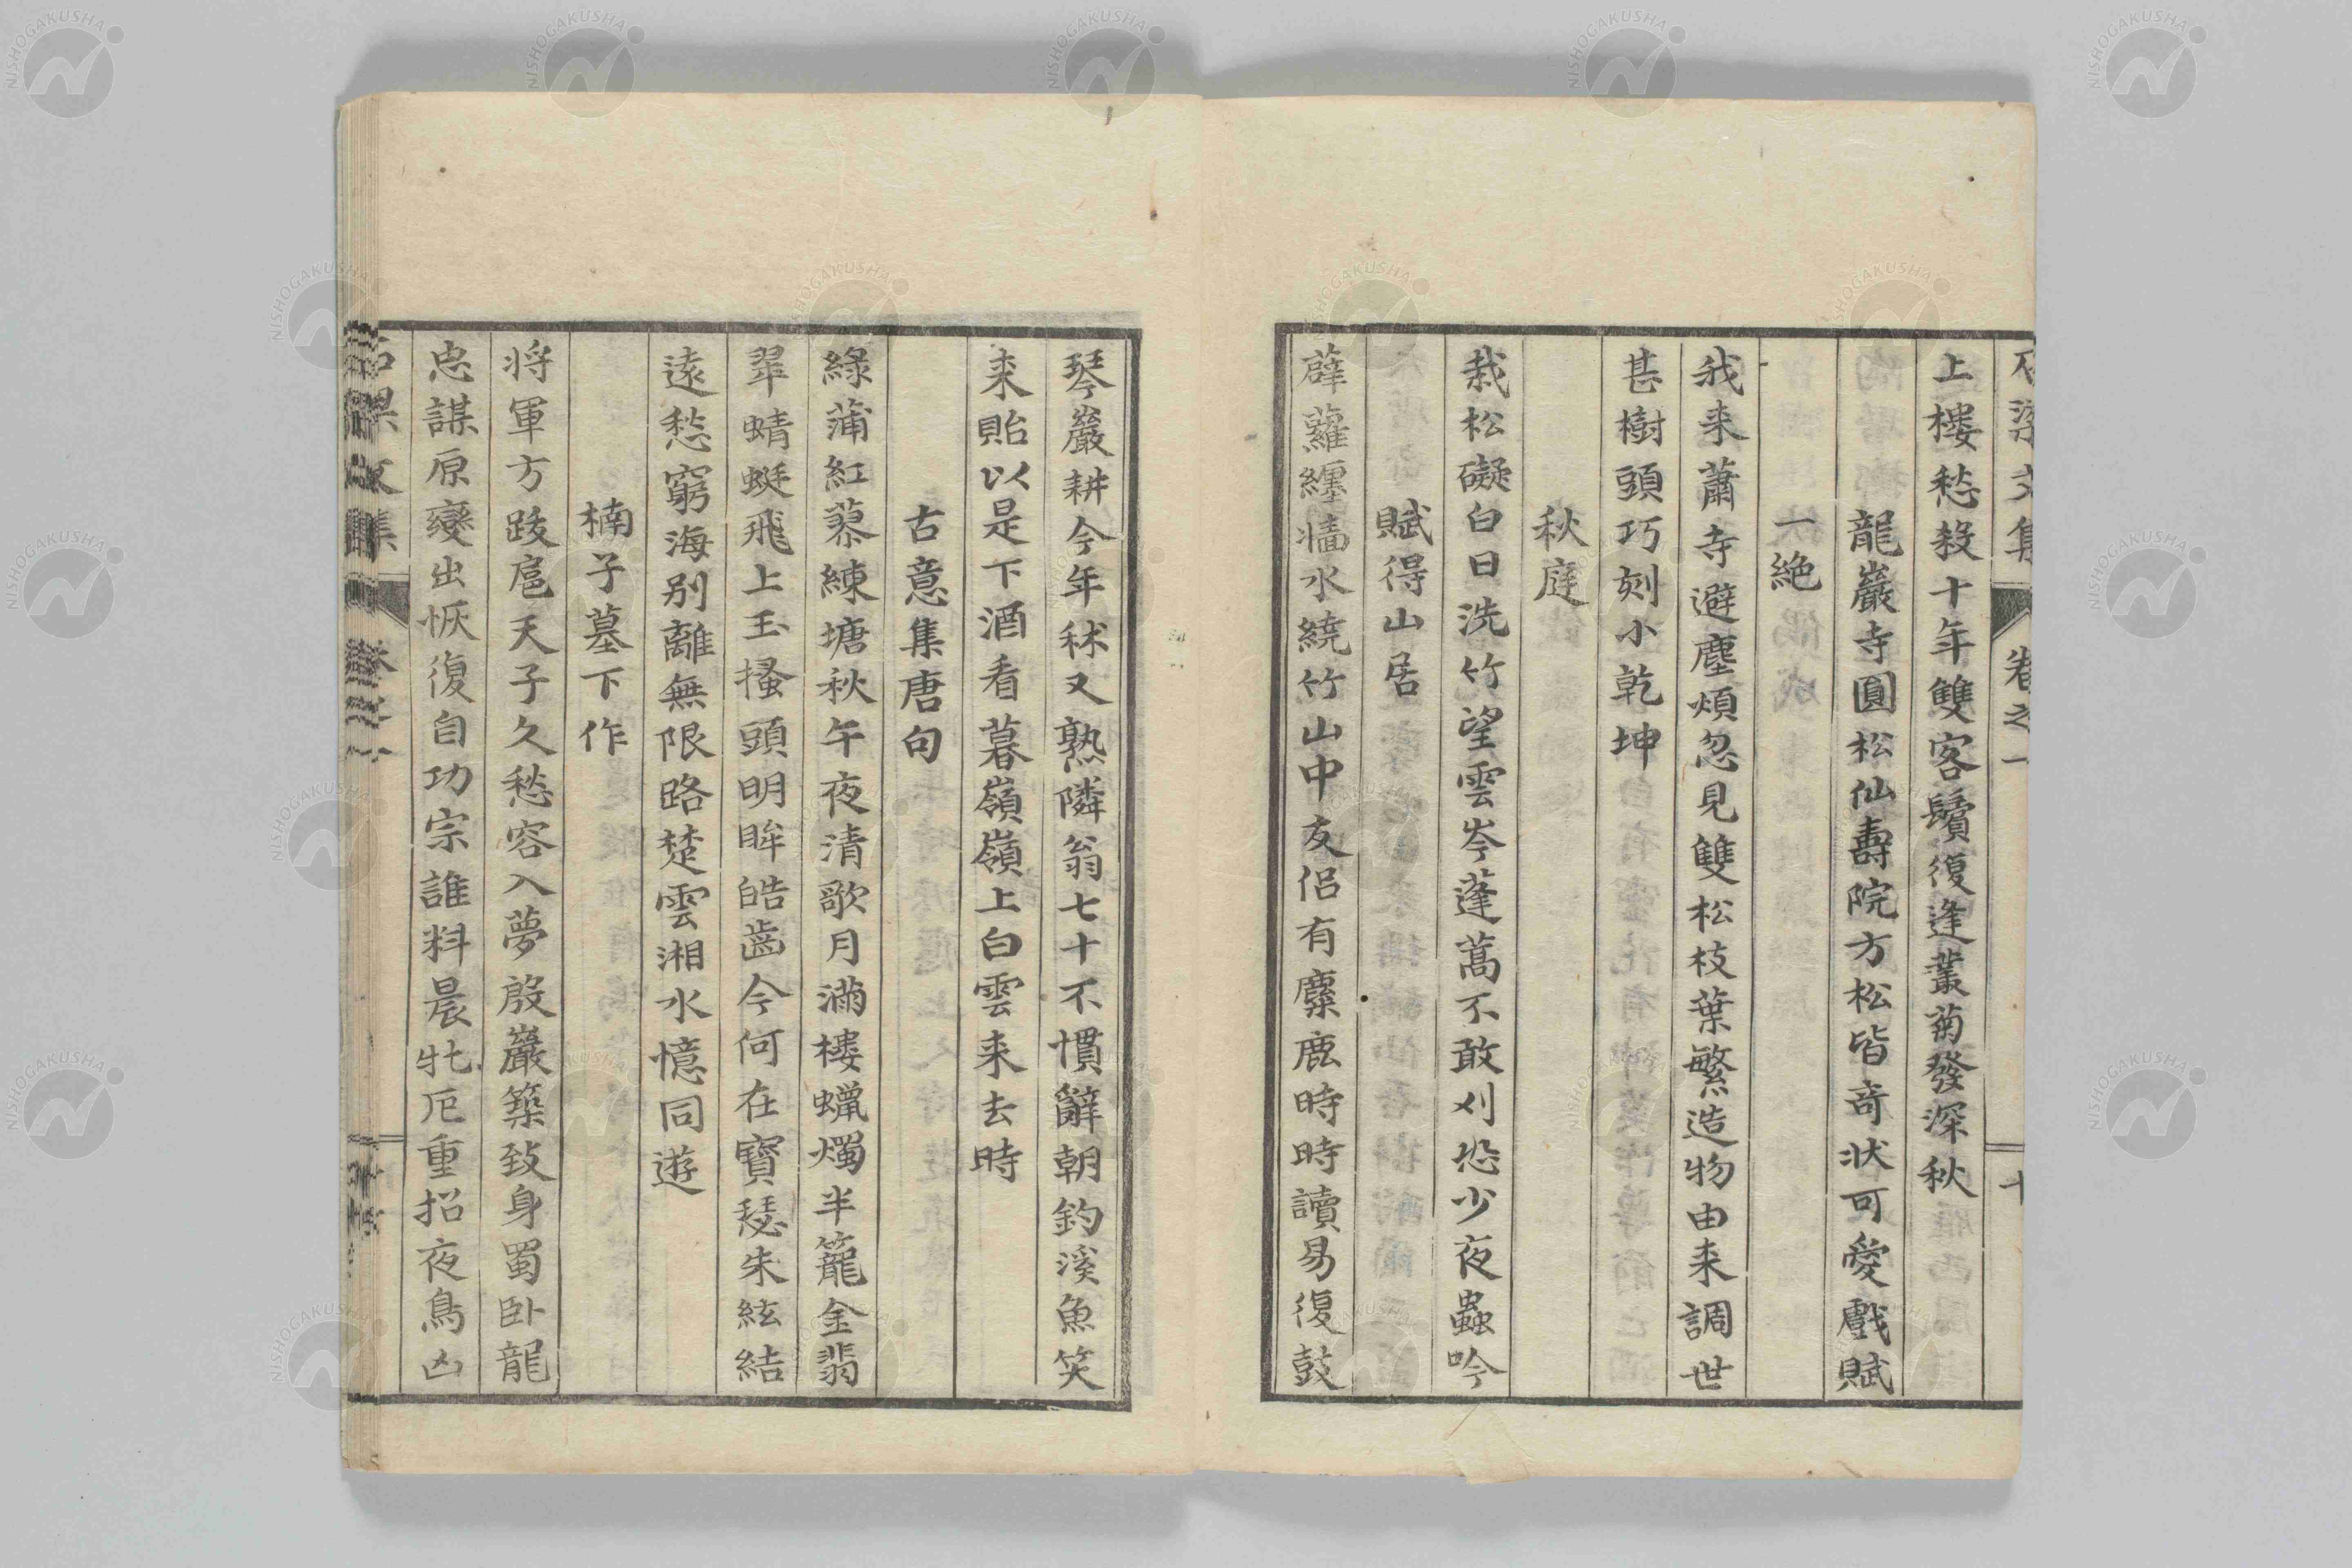 上樓愁殺十年雙客鬢復逢叢菊發深秋
龍巖寺圓松仙壽院方松皆奇状可愛戲賦
一絶
我来蕭寺避塵煩忽見雙松枝葉繁造物由来調世
甚樹頭巧刻小乾坤
秋庭
栽松礙白日洗竹望雲岑蓬蒿不敢刈恐少夜蟲吟
賦得山居
薜蘿纏墻水繞竹山中友侶有麋鹿時時讀易復鼓
琴巖耕今年秫又熟隣翁七十不慣辭朝釣溪魚笑
来貽以是下酒看暮嶺嶺上白雲来去時
古意集唐句
綠蒲紅蓼練塘秋午夜清歌月滿樓蠟燭半籠金翡
翠蜻蜓飛上玉搔頭明眸皓齒今何在寶瑟朱絃結
遠愁窮海別離無限路楚雲湘水憶同遊
楠子墓下作
将軍方跋扈天子久愁容入夢殷巖築致身蜀卧龍
忠謀原變出恢復自功宗誰料晨牝厄重招夜鳥凶
卷之一
NISHOGAKUSHA